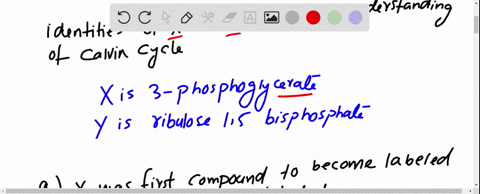 identities
of Calvin Cycle
X is 3-phosphoglycerate
Y is ribulose 1,5 bisphosphate
a) first compound to become labeled